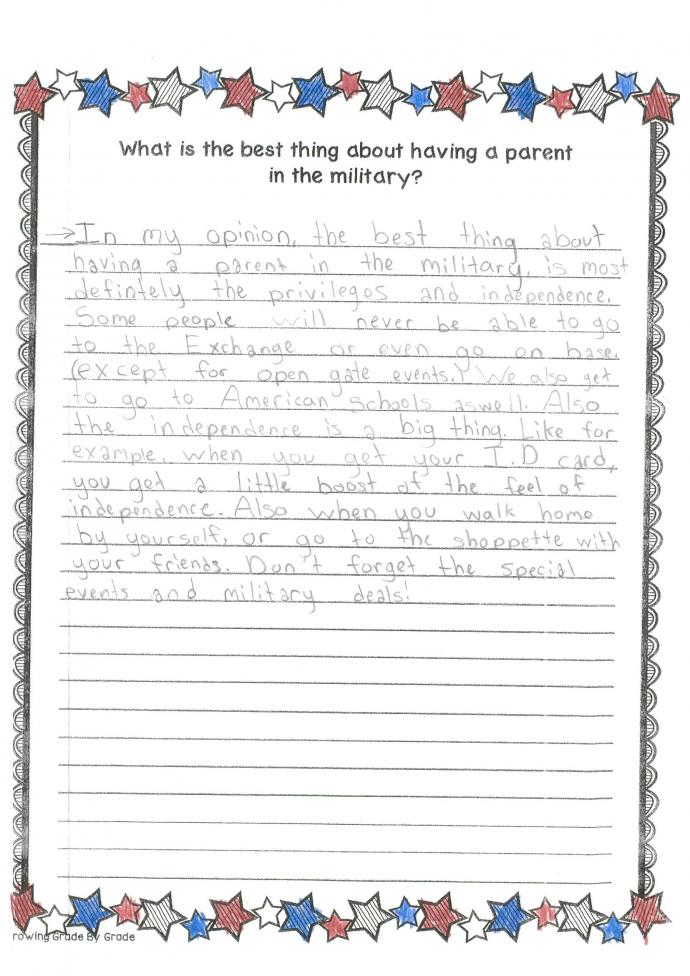 What is the best thing about having a parent
in the military?
→In my opinion, the best thing about
having a parent in the military, is most
defintely the privilegos and independence.
Some people will never be able to go
to the Exchange or even go on base.
(except for open gate events.) We also get
to go to American Schools aswell. Also
the independence is a big thing. Like for
example, when you get your I.D card,
you get a little boost of the feel of
independence. Also when you walk home
by yourself, or go to the shoppette with
your friends. Don't forget the special
events and military deals!
rowing Grade By Grade